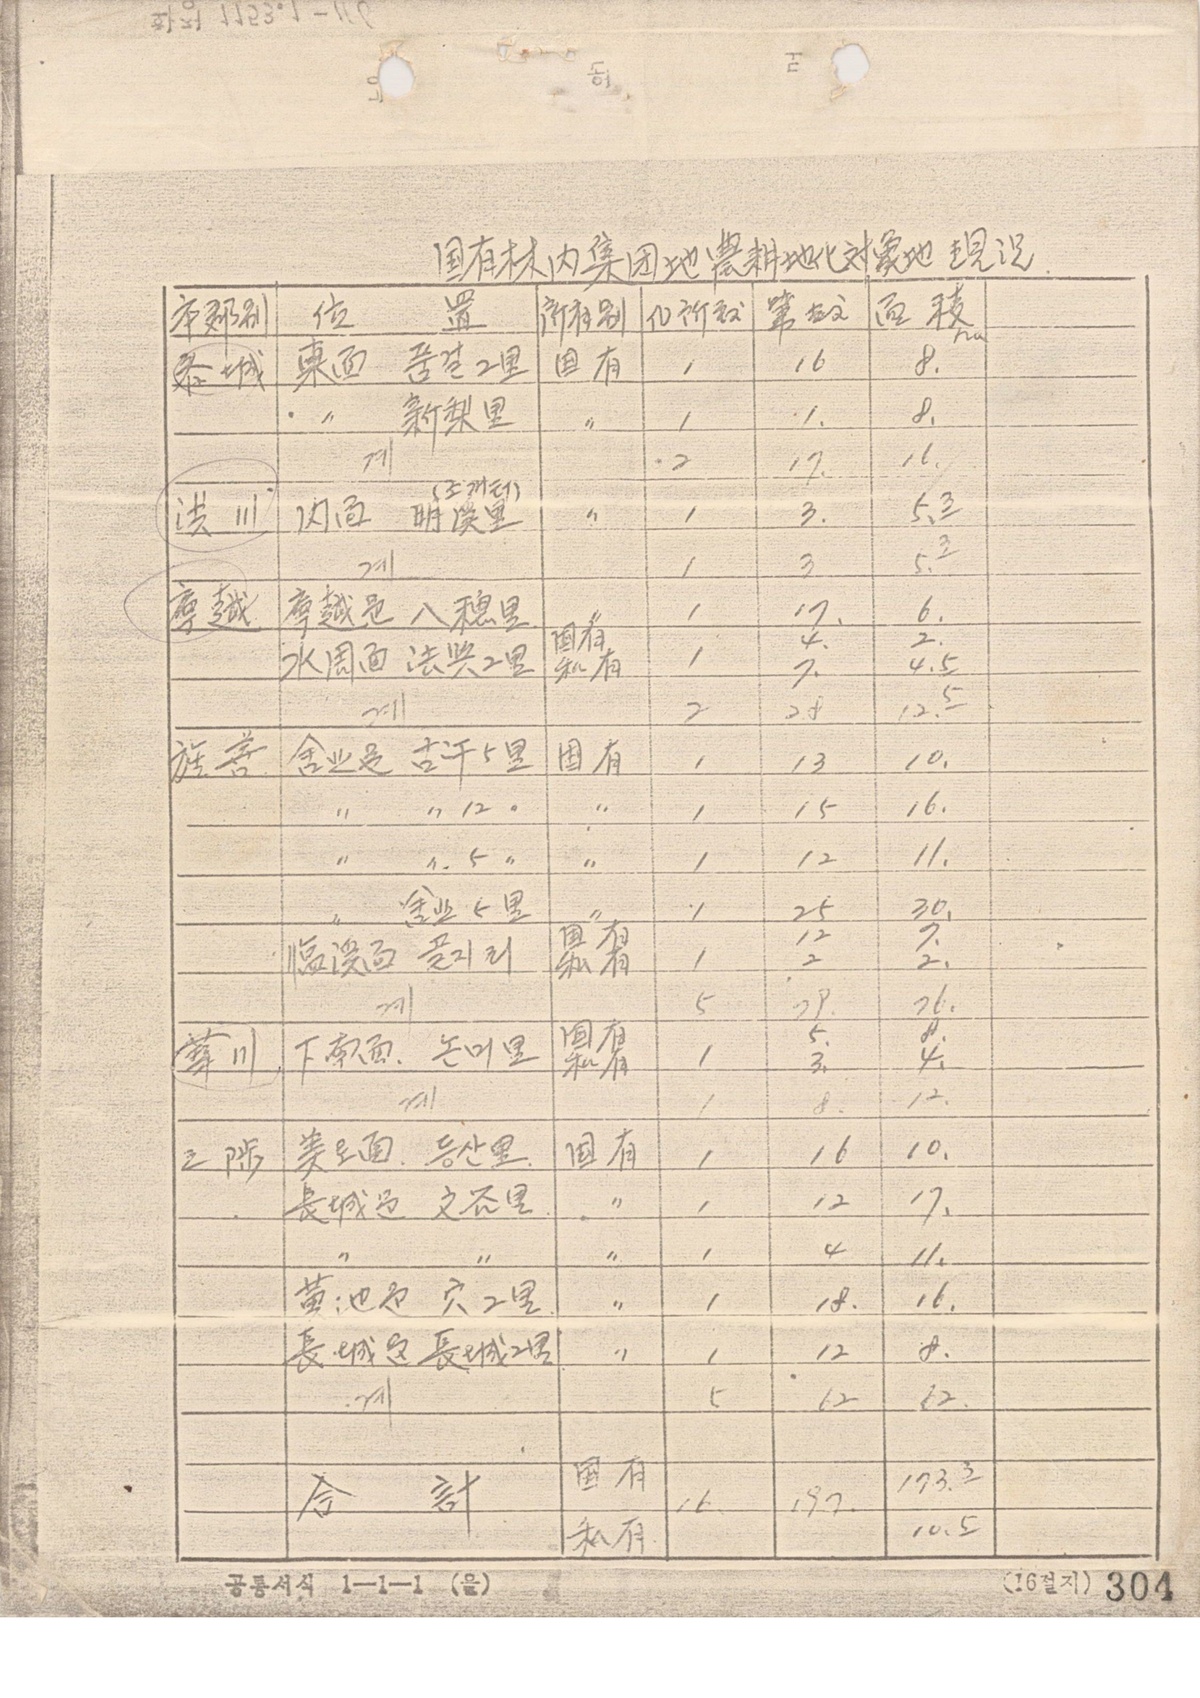 国有林内集団地農耕地化対象地 現況
市郡別 位 置 所有別 個所数 筆数 面積
ha
春城 東面 품걸2里 国有 1 16 8.
〃 新梨里 〃 1 1. 8.
계 2 17. 16.
(조개터)
洪川 内面 明渓里 〃 1 3. 5.3
계 1 3 5.3
寧越 寧越邑 八穂里 〃 1 17. 6.
水周面 法興2里 国有 1 4. 2.
私有 7. 4.5
계 2 28 12.5
旌善 舎北邑 古汗5里 国有 1 13 10.
〃 〃 12 〃 〃 1 15 16.
〃 〃 5 〃 〃 1 12 11.
〃 舎北5里 〃 1 25 30.
臨渓面 国有 1 12 7.
私有 2 2.
계 5 79. 76.
華川 下南面. 논미里 国有 1 5. 8.
私有 3. 4.
계 1 8. 12.
三陟 美로面. 등산里. 国有 1 16 10.
長城邑 文谷里. 〃 1 12 17.
〃 〃 〃 1 4 11.
黄池邑 穴2里. 〃 1 18. 16.
長城邑 長城2里 〃 1 12 8.
계 5 62 62.
合 計 国有 16. 197. 173.3
私有. 10.5
공통서식 1—1—1 (을) (16절지) 304